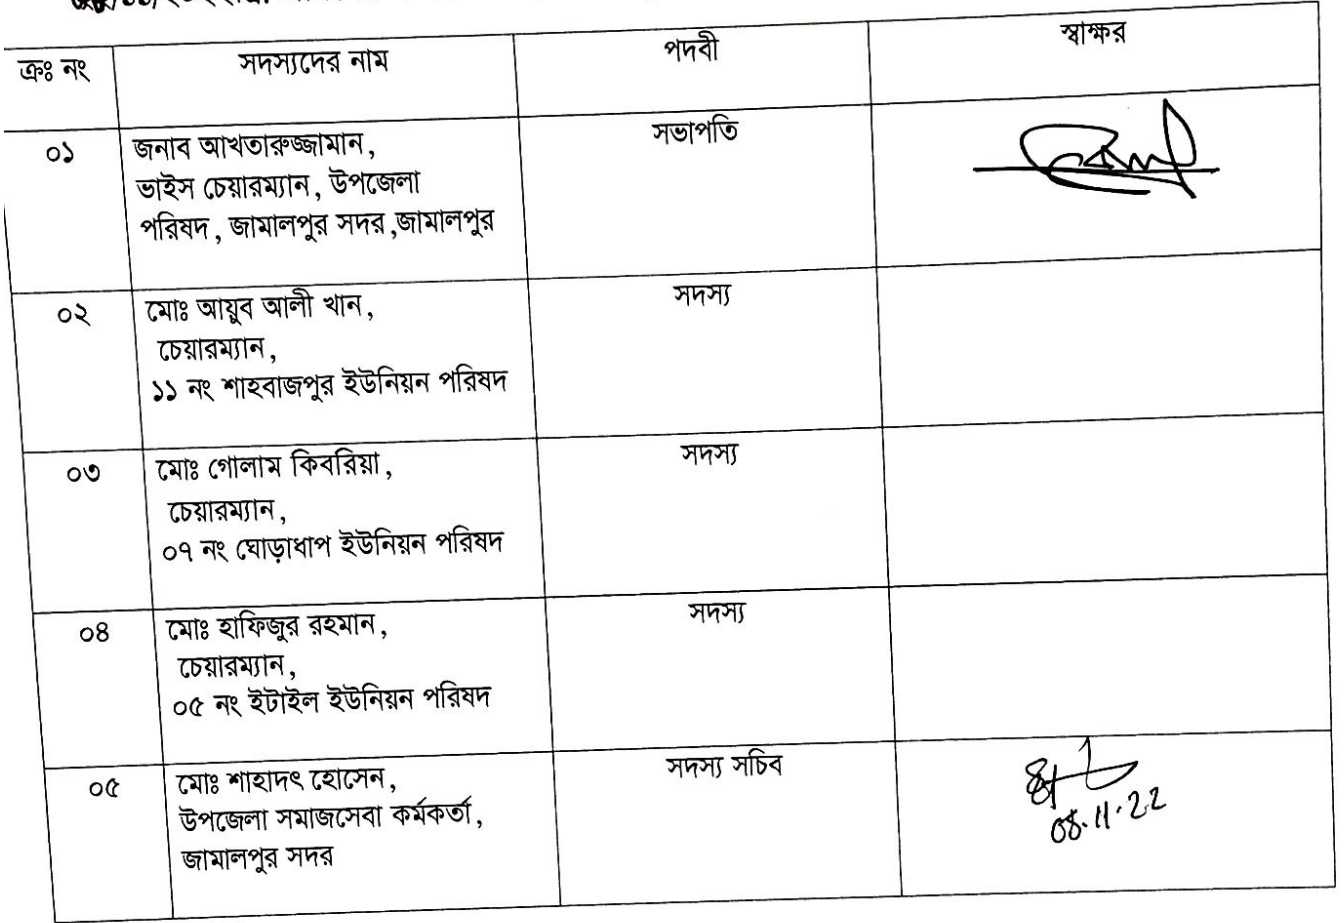 ক্রঃ নং
সদস্যদের নাম
পদবী
স্বাক্ষর
০১
জনাব আখতারুজ্জামান,
ভাইস চেয়ারম্যান, উপজেলা
পরিষদ, জামালপুর সদর,জামালপুর
সভাপতি
০২
মোঃ আয়ুব আলী খান,
চেয়ারম্যান,
১১ নং শাহবাজপুর ইউনিয়ন পরিষদ
সদস্য
০৩
মোঃ গোলাম কিবরিয়া,
চেয়ারম্যান,
০৭ নং ঘোড়াধাপ ইউনিয়ন পরিষদ
সদস্য
০৪
মোঃ হাফিজুর রহমান,
চেয়ারম্যান,
০৫ নং ইটাইল ইউনিয়ন পরিষদ
সদস্য
০৫
মোঃ শাহাদৎ হোসেন,
উপজেলা সমাজসেবা কর্মকর্তা,
জামালপুর সদর
সদস্য সচিব
08.11.22